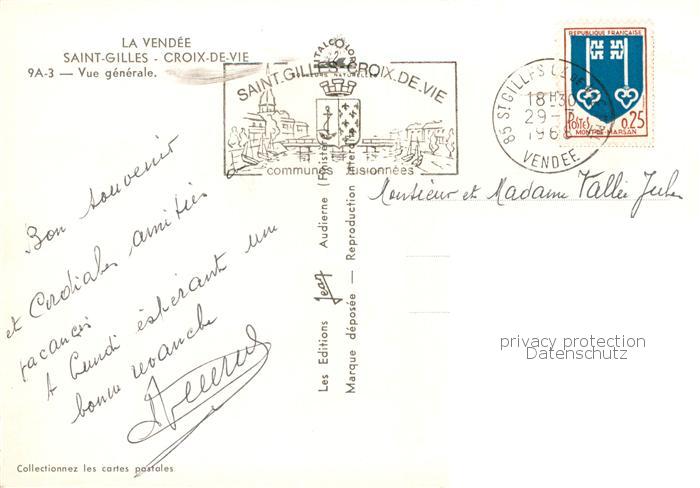 LA VENDÉE
SAINT-GILLES - CROIX-DE-VIE
9A-3 — Vue générale.
SAINT-GILLES-CROIX-DE-VIE
communes fusionnées
RÉPUBLIQUE FRANÇAISE
POSTES 0,25
MONT-DE-MARSAN
18H30
29-
196
VENDÉE
Bon souvenir
et Cordiales amitiés
vacances
A Lundi espérant une
bonne revanche
Monsieur et Madame Vallée Jules
Les Editions Jean Audierne (Finistère)
Marque déposée — Reproduction interdite
privacy protection
Datenschutz
Collectionnez les cartes postales